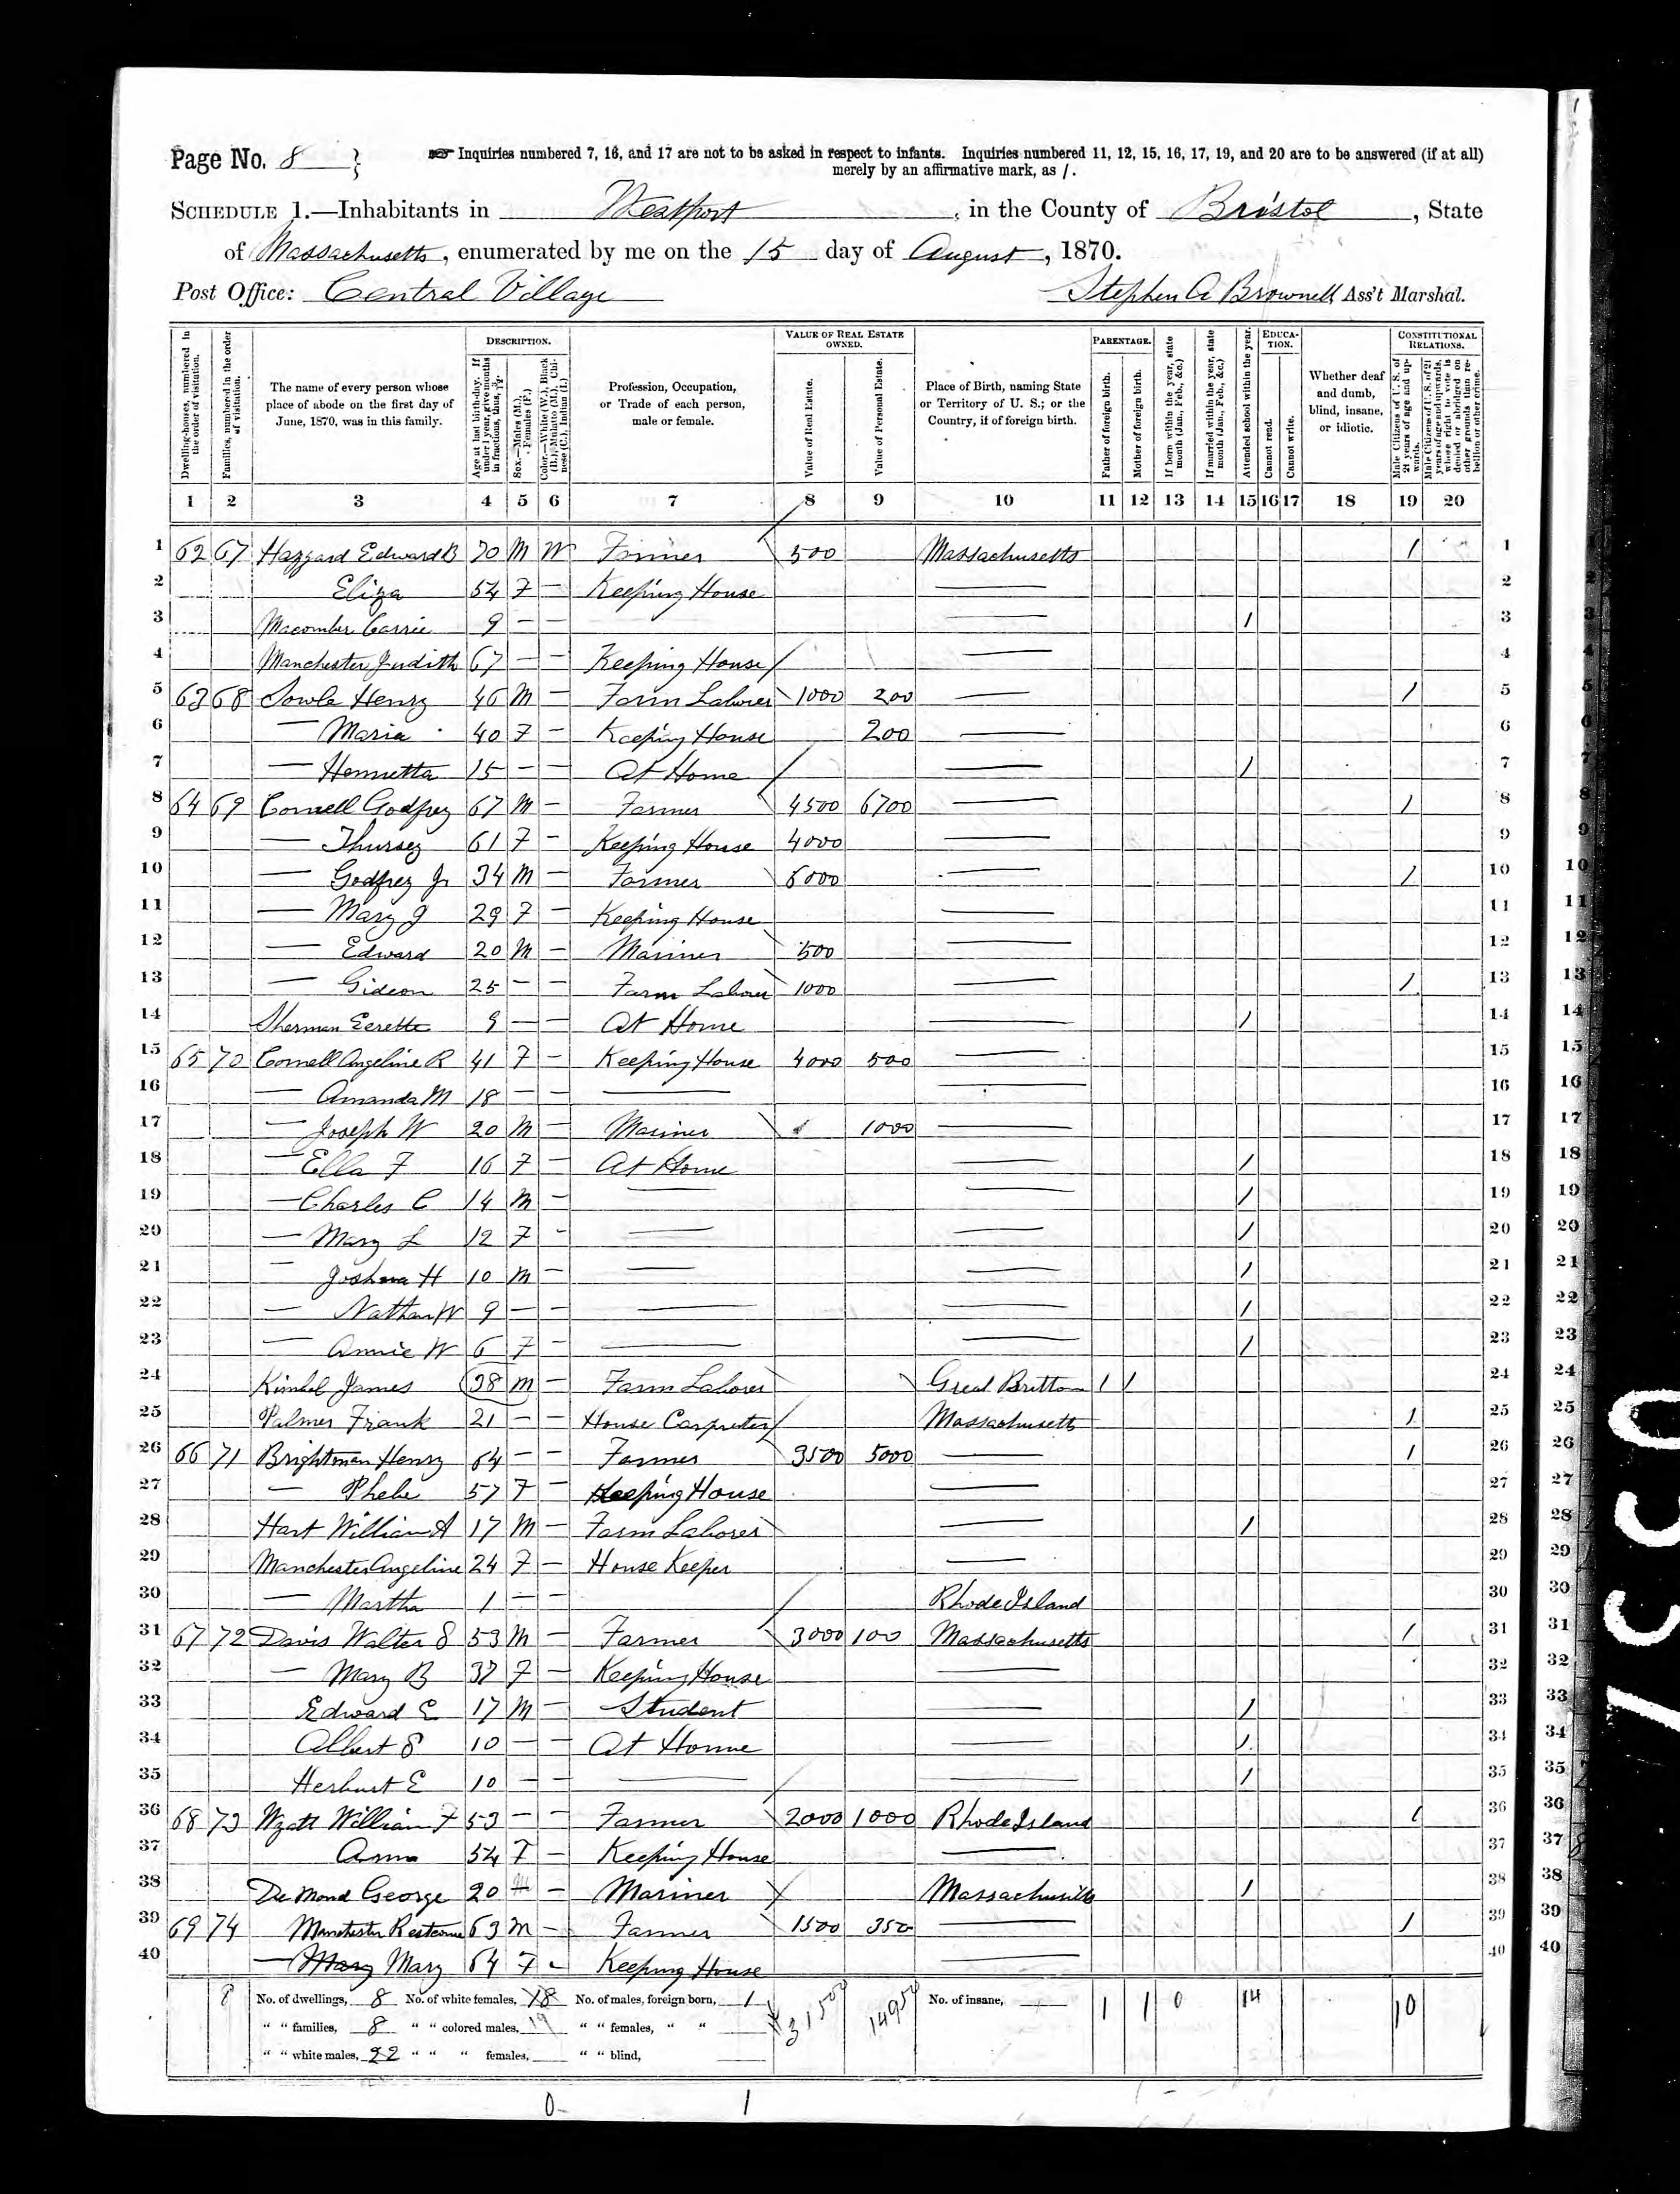 Page No. 8
Inquiries numbered 7, 16, and 17 are not to be asked in respect to infants. Inquiries numbered 11, 12, 15, 16, 17, 19, and 20 are to be answered (if at all)
merely by an affirmative mark, as /.
SCHEDULE 1.—Inhabitants in Westport, in the County of Bristol, State
of Massachusetts, enumerated by me on the 15 day of August, 1870.
Post Office: Central Village Stephen A Brownell, Ass't Marshal.
Dwelling-houses, numbered in the order of visitation.
Families, numbered in the order of visitation.
The name of every person whose place of abode on the first day of June, 1870, was in this family.
DESCRIPTION.
Age at last birth-day. If under 1 year, give months in fractions, thus, 3/12.
Sex.—Males (M.), Females (F.)
Color.—White (W.), Black (B.), Mulatto (M.), Chinese (C.), Indian (I.)
Profession, Occupation, or Trade of each person, male or female.
VALUE OF REAL ESTATE OWNED.
Value of Real Estate.
Value of Personal Estate.
Place of Birth, naming State or Territory of U. S.; or the Country, if of foreign birth.
PARENTAGE.
Father of foreign birth.
Mother of foreign birth.
If born within the year, state month (Jan., Feb., &c.)
If married within the year, state month (Jan., Feb., &c.)
Attended school within the year.
EDUCATION.
Cannot read.
Cannot write.
Whether deaf and dumb, blind, insane, or idiotic.
CONSTITUTIONAL RELATIONS.
Male Citizens of U. S. of 21 years of age and upwards.
Male Citizens of U. S. of 21 years of age and upwards, whose right to vote is denied or abridged on other grounds than rebellion or other crime.
1 2 3 4 5 6 7 8 9 10 11 12 13 14 15 16 17 18 19 20
1 62 67 Hazzard Edward B 70 M W Farmer 500 Massachusetts / 1
2 Eliza 54 F — Keeping House — 2
3 Macomber Carrie 9 — — — / 3
4 Manchester Judith 67 — — Keeping House — 4
5 63 68 Sowle Henry 46 M — Farm Laborer 1000 200 — / 5
6 — Maria 40 F — Keeping House 200 — 6
7 — Henrietta 15 — — At Home — / 7
8 64 69 Cornell Godfrey 67 M — Farmer 4500 6700 — / 8
9 — Thursey 61 F — Keeping House 4000 — 9
10 — Godfrey Jr 34 M — Farmer 6000 — / 10
11 — Mary J 29 F — Keeping House — 11
12 — Edward 20 M — Mariner 500 — 12
13 — Gideon 25 — — Farm Labour 1000 — / 13
14 Sherman 9 — — At Home — / 14
15 65 70 Cornell Angeline R 41 F — Keeping House 4000 500 — 15
16 — Amanda M 18 — — — — 16
17 — Joseph W 20 M — Mariner 1000 — 17
18 — Ella F 16 F — At Home — / 18
19 — Charles C 14 M — — — / 19
20 — Mary L 12 F - — — / 20
21 — Joshua H 10 M — — — / 21
22 — Nathan W 9 — — — — / 22
23 — Annie W 6 F — — — / 23
24 James 38 M — Farm Laborer Great Britton / / 24
25 Palmer Frank 21 — — House Carpenter Massachusetts / 25
26 66 71 Brightman Henry 64 — — Farmer 3500 5000 — / 26
27 — Phebe 57 F — Keeping House — 27
28 Hart William A 17 M — Farm Laborer — / 28
29 Manchester Angeline 24 F — House Keeper — 29
30 — Martha 1 — — Rhode Island 30
31 67 72 Davis Walter S 53 M — Farmer 3000 100 Massachusetts / 31
32 — Mary B 37 F — Keeping House — 32
33 Edward E 17 M — Student — / 33
34 Albert S 10 — — At Home — / 34
35 Herbert E 10 — — — — / 35
36 68 73 Wyatt William F 53 — — Farmer 2000 1000 Rhode Island / 36
37 Ann 54 F — Keeping House — 37
38 De Mond George 20 M — Mariner Massachusetts / 38
39 69 74 Manchester Restcome 63 M — Farmer 1500 350 — / 39
40 — Mary Mary 64 F - Keeping House — 40
8 No. of dwellings, 8 No. of white females, 18 No. of males, foreign born, 1 31500 14950 No. of insane, 1 1 0 14 10
" " families, 8 " " colored males, " " females, " "
" " white males, 22 " " " females, " " blind,
0 1